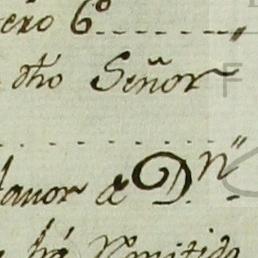 ero 6º
dho Señor
favor de Dn
he há Remitido